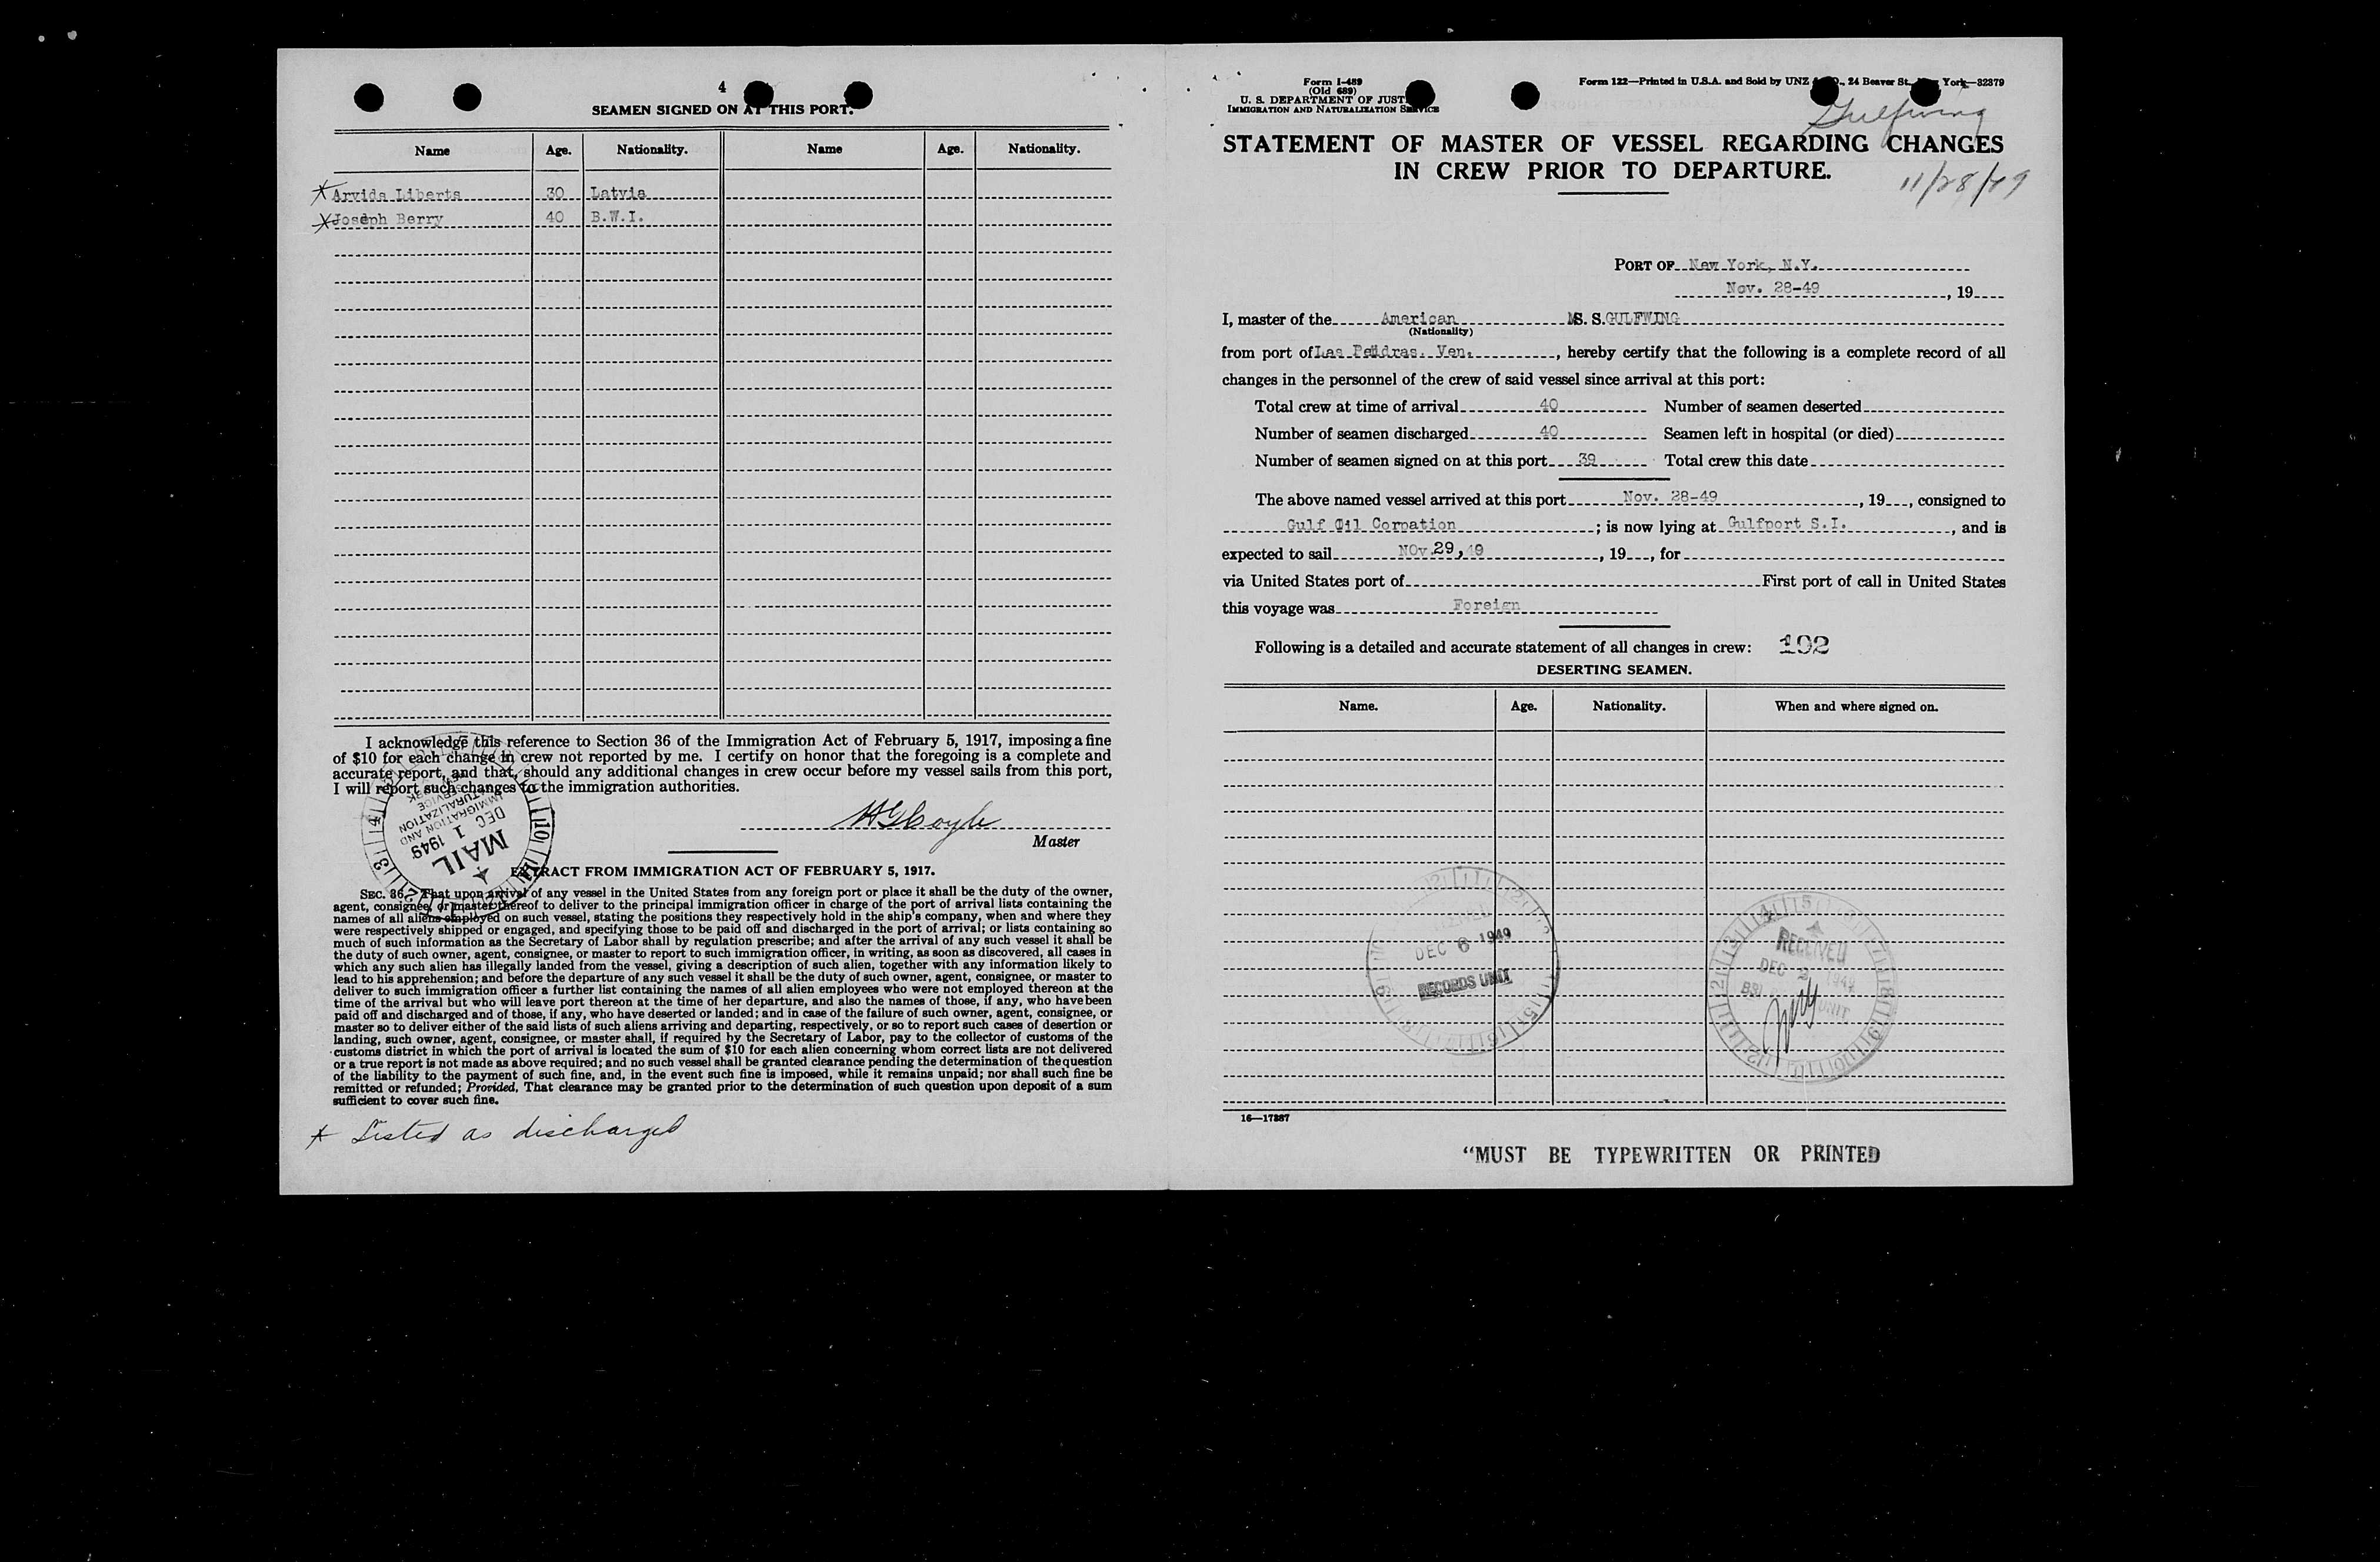 4
SEAMEN SIGNED ON AT THIS PORT.
Name Age. Nationality. Name Age. Nationality.
* Arvids Liberts 30 Latvia
* Joseph Berry 40 B.W.I.
I acknowledge this reference to Section 36 of the Immigration Act of February 5, 1917, imposing a fine
of $10 for each change in crew not reported by me. I certify on honor that the foregoing is a complete and
accurate report, and that, should any additional changes in crew occur before my vessel sails from this port,
I will report such changes to the immigration authorities.
Master
IMMIGRATION AND
NATURALIZATION
SERVICE
DEC 1 1949
MAIL
EXTRACT FROM IMMIGRATION ACT OF FEBRUARY 5, 1917.
SEC. 36. That upon arrival of any vessel in the United States from any foreign port or place it shall be the duty of the owner,
agent, consignee, or master thereof to deliver to the principal immigration officer in charge of the port of arrival lists containing the
names of all aliens employed on such vessel, stating the positions they respectively hold in the ship's company, when and where they
were respectively shipped or engaged, and specifying those to be paid off and discharged in the port of arrival; or lists containing so
much of such information as the Secretary of Labor shall by regulation prescribe; and after the arrival of any such vessel it shall be
the duty of such owner, agent, consignee, or master to report to such immigration officer, in writing, as soon as discovered, all cases in
which any such alien has illegally landed from the vessel, giving a description of such alien, together with any information likely to
lead to his apprehension; and before the departure of any such vessel it shall be the duty of such owner, agent, consignee, or master to
deliver to such immigration officer a further list containing the names of all alien employees who were not employed thereon at the
time of the arrival but who will leave port thereon at the time of her departure, and also the names of those, if any, who have been
paid off and discharged and of those, if any, who have deserted or landed; and in case of the failure of such owner, agent, consignee, or
master so to deliver either of the said lists of such aliens arriving and departing, respectively, or so to report such cases of desertion or
landing, such owner, agent, consignee, or master shall, if required by the Secretary of Labor, pay to the collector of customs of the
customs district in which the port of arrival is located the sum of $10 for each alien concerning whom correct lists are not delivered
or a true report is not made as above required; and no such vessel shall be granted clearance pending the determination of the question
of the liability to the payment of such fine, and, in the event such fine is imposed, while it remains unpaid; nor shall such fine be
remitted or refunded; Provided, That clearance may be granted prior to the determination of such question upon deposit of a sum
sufficient to cover such fine.
* Listed as discharged
Form I-489
(Old 689)
U. S. DEPARTMENT OF JUST
IMMIGRATION AND NATURALIZATION SERVICE
Form 122—Printed in U.S.A. and Sold by UNZ , 24 Beaver St., New York—32379
Gulfwing
STATEMENT OF MASTER OF VESSEL REGARDING CHANGES
IN CREW PRIOR TO DEPARTURE.
11/28/49
PORT OF New York, N.Y.
Nov. 28-49, 19
I, master of the American MS. S. GULFWING
(Nationality)
from port of Las Peidras. Ven., hereby certify that the following is a complete record of all
changes in the personnel of the crew of said vessel since arrival at this port:
Total crew at time of arrival 40 Number of seamen deserted
Number of seamen discharged 40 Seamen left in hospital (or died)
Number of seamen signed on at this port 39 Total crew this date
The above named vessel arrived at this port Nov. 28-49, 19, consigned to
Gulf Oil Corpation; is now lying at Gulfport S.I., and is
expected to sail NOv.29,49, 19, for
via United States port of First port of call in United States
this voyage was Foreign
Following is a detailed and accurate statement of all changes in crew: 192
DESERTING SEAMEN.
Name. Age. Nationality. When and where signed on.
DEC 6 1949
RECORDS UNIT
RECEIVED
DEC 2 1949
UNIT
16—17887
"MUST BE TYPEWRITTEN OR PRINTED